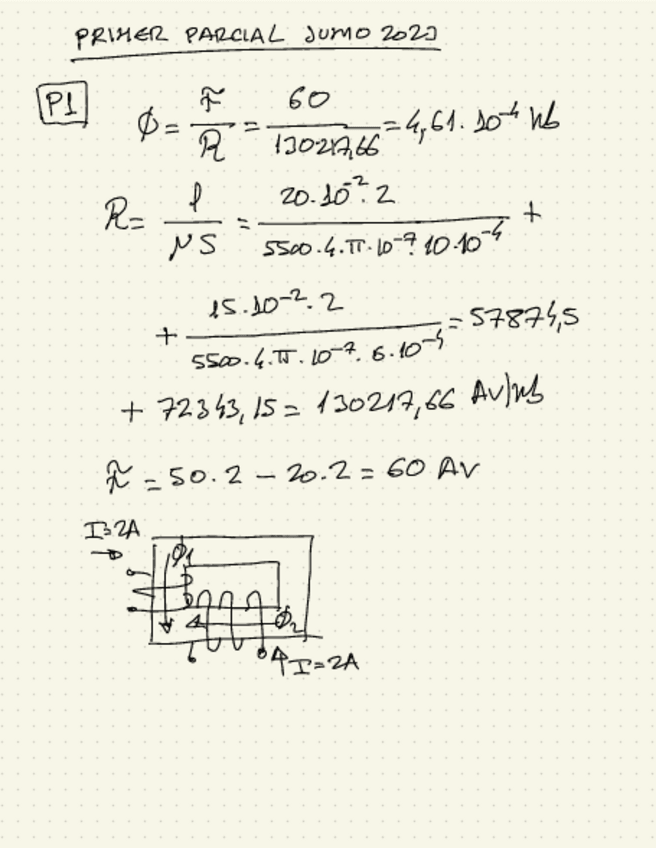 PRIMER PARCIAL JUNIO 2023
P1
Φ = F/R = 60/130217,66 = 4,61·10⁻⁴ Wb
R = l/μS = 20·10⁻²·2/5500·4·π·10⁻⁷·10·10⁻⁴ +
+ 15·10⁻²·2/5500·4·π·10⁻⁷·6·10⁻⁴ = 57874,5
+ 72343,15 = 130217,66 Av/Wb
F = 50·2 − 20·2 = 60 AV
I=2A
Φ1
Φ2
I=2A